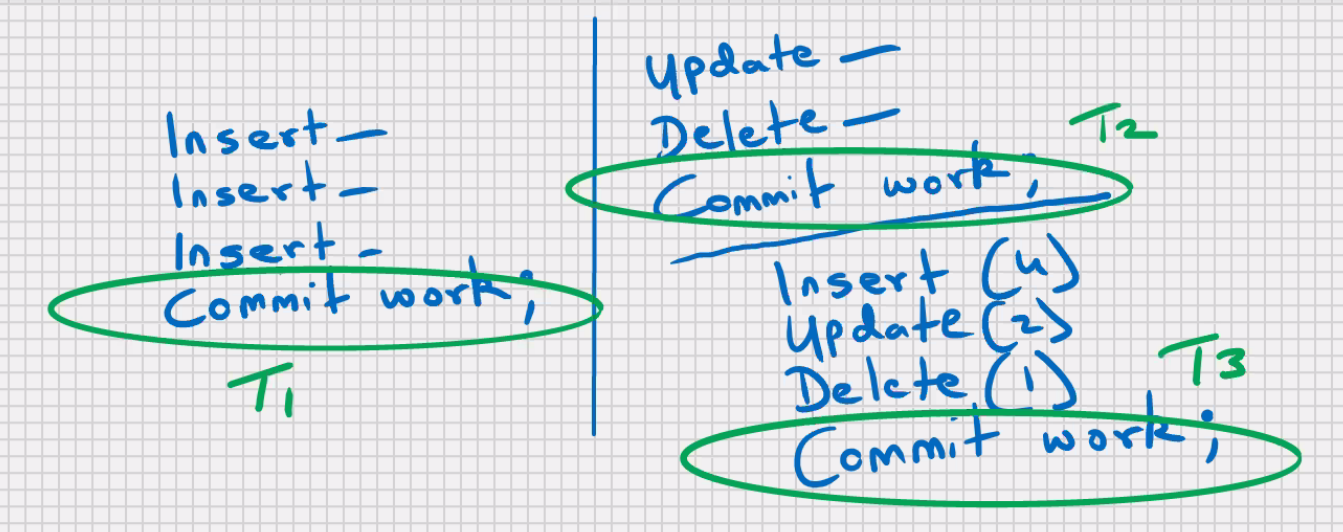 Insert —
Insert —
Insert -
Commit work;
T1
Update —
Delete —
T2
Commit work;
Insert (4)
Update (2)
Delete (1)
T3
Commit work;